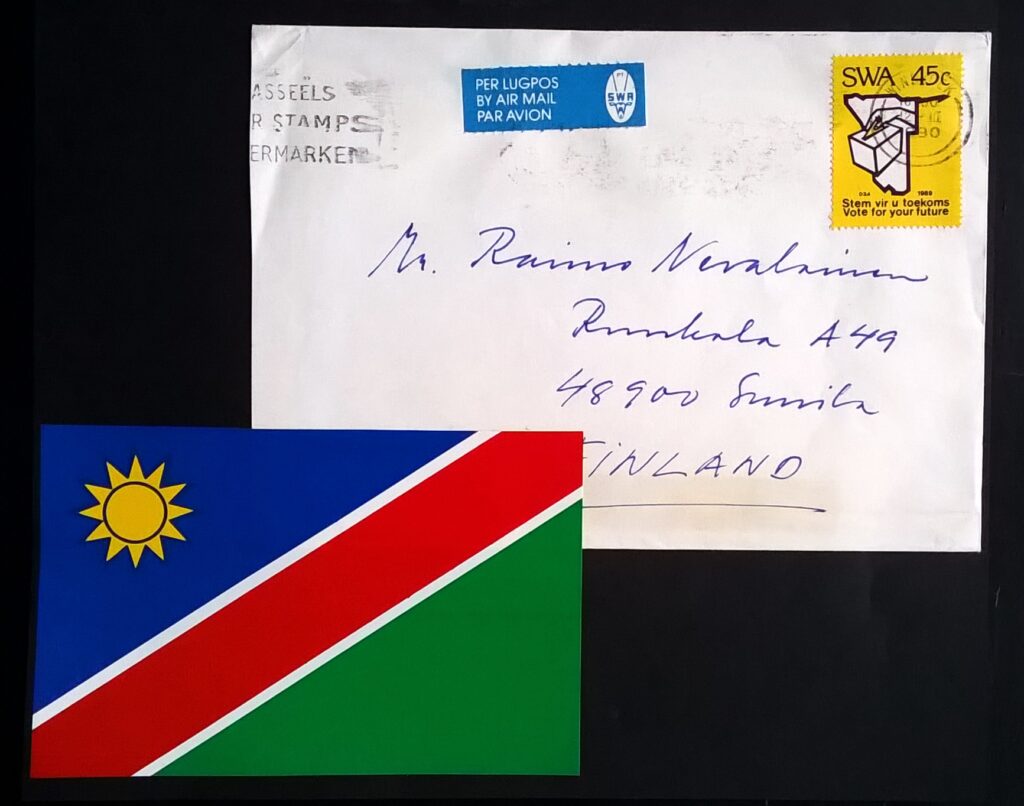 ASSEËLS
R STAMPS
ERMARKEN
PER LUGPOS
BY AIR MAIL
PAR AVION
PT
SWA
SWA 45c
90
D3A 1989
Stem vir u toekoms
Vote for your future
Mr. Raimo Nevalainen
Runkola A 49
48900 Sunila
FINLAND